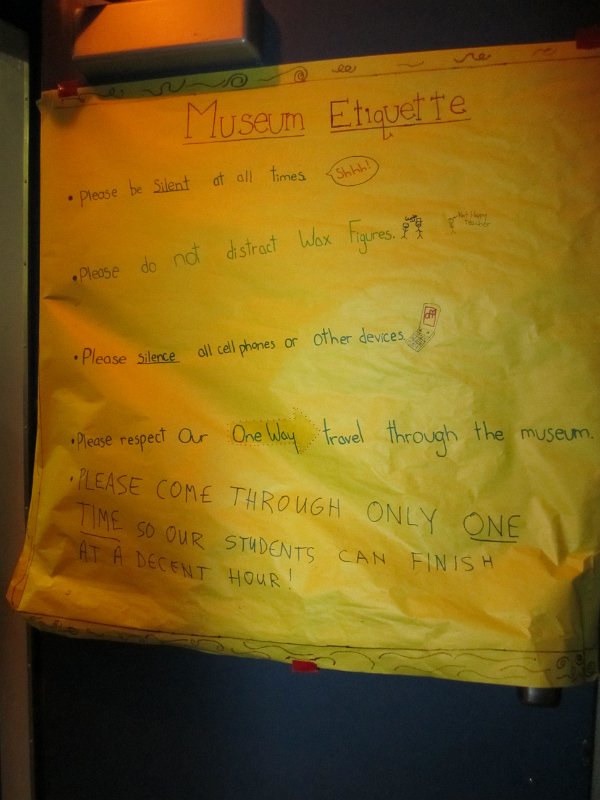 Museum Etiquette
• Please be Silent at all times. Shhh!
• Please do not distract Wax Figures. Not Happy Teacher
• Please silence all cell phones or other devices. off
• Please respect Our One Way travel through the museum.
• PLEASE COME THROUGH ONLY ONE
TIME SO OUR STUDENTS CAN FINISH
AT A DECENT HOUR!